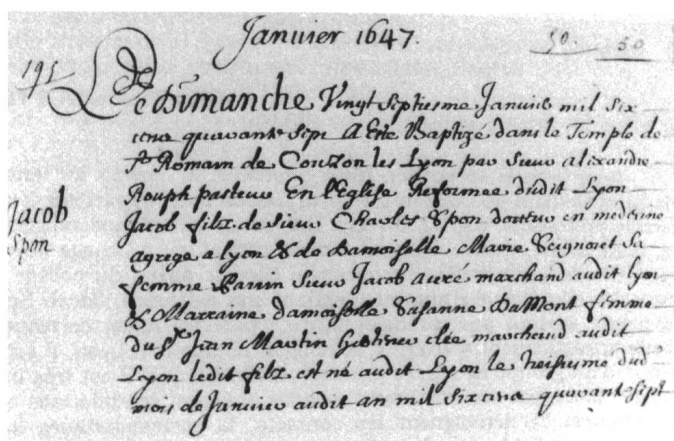 Janvier 1647.
50. 50
195
Le Dimanche Vingt septiesme Janvier mil six
cens quarante sept A Este Baptizé dans le Temple de
St Romain de Couzon les Lyon par sieur alexandre
Rouph pasteur En l'Eglise Reformee dudit Lyon
Jacob filz de sieur Charles Spon docteur en medecine
Jacob
Spon
agregé a lyon & de Damoiselle Marie Seignoret sa
femme Parrin sieur Jacob auré marchand audit lyon
& Marraine damoiselle Susanne DuMont femme
du Sr Jean Martin marchand audit
Lyon ledit filz est né audit Lyon le treisiesme dud
mois de Janvier audit an mil six cens quarante sept